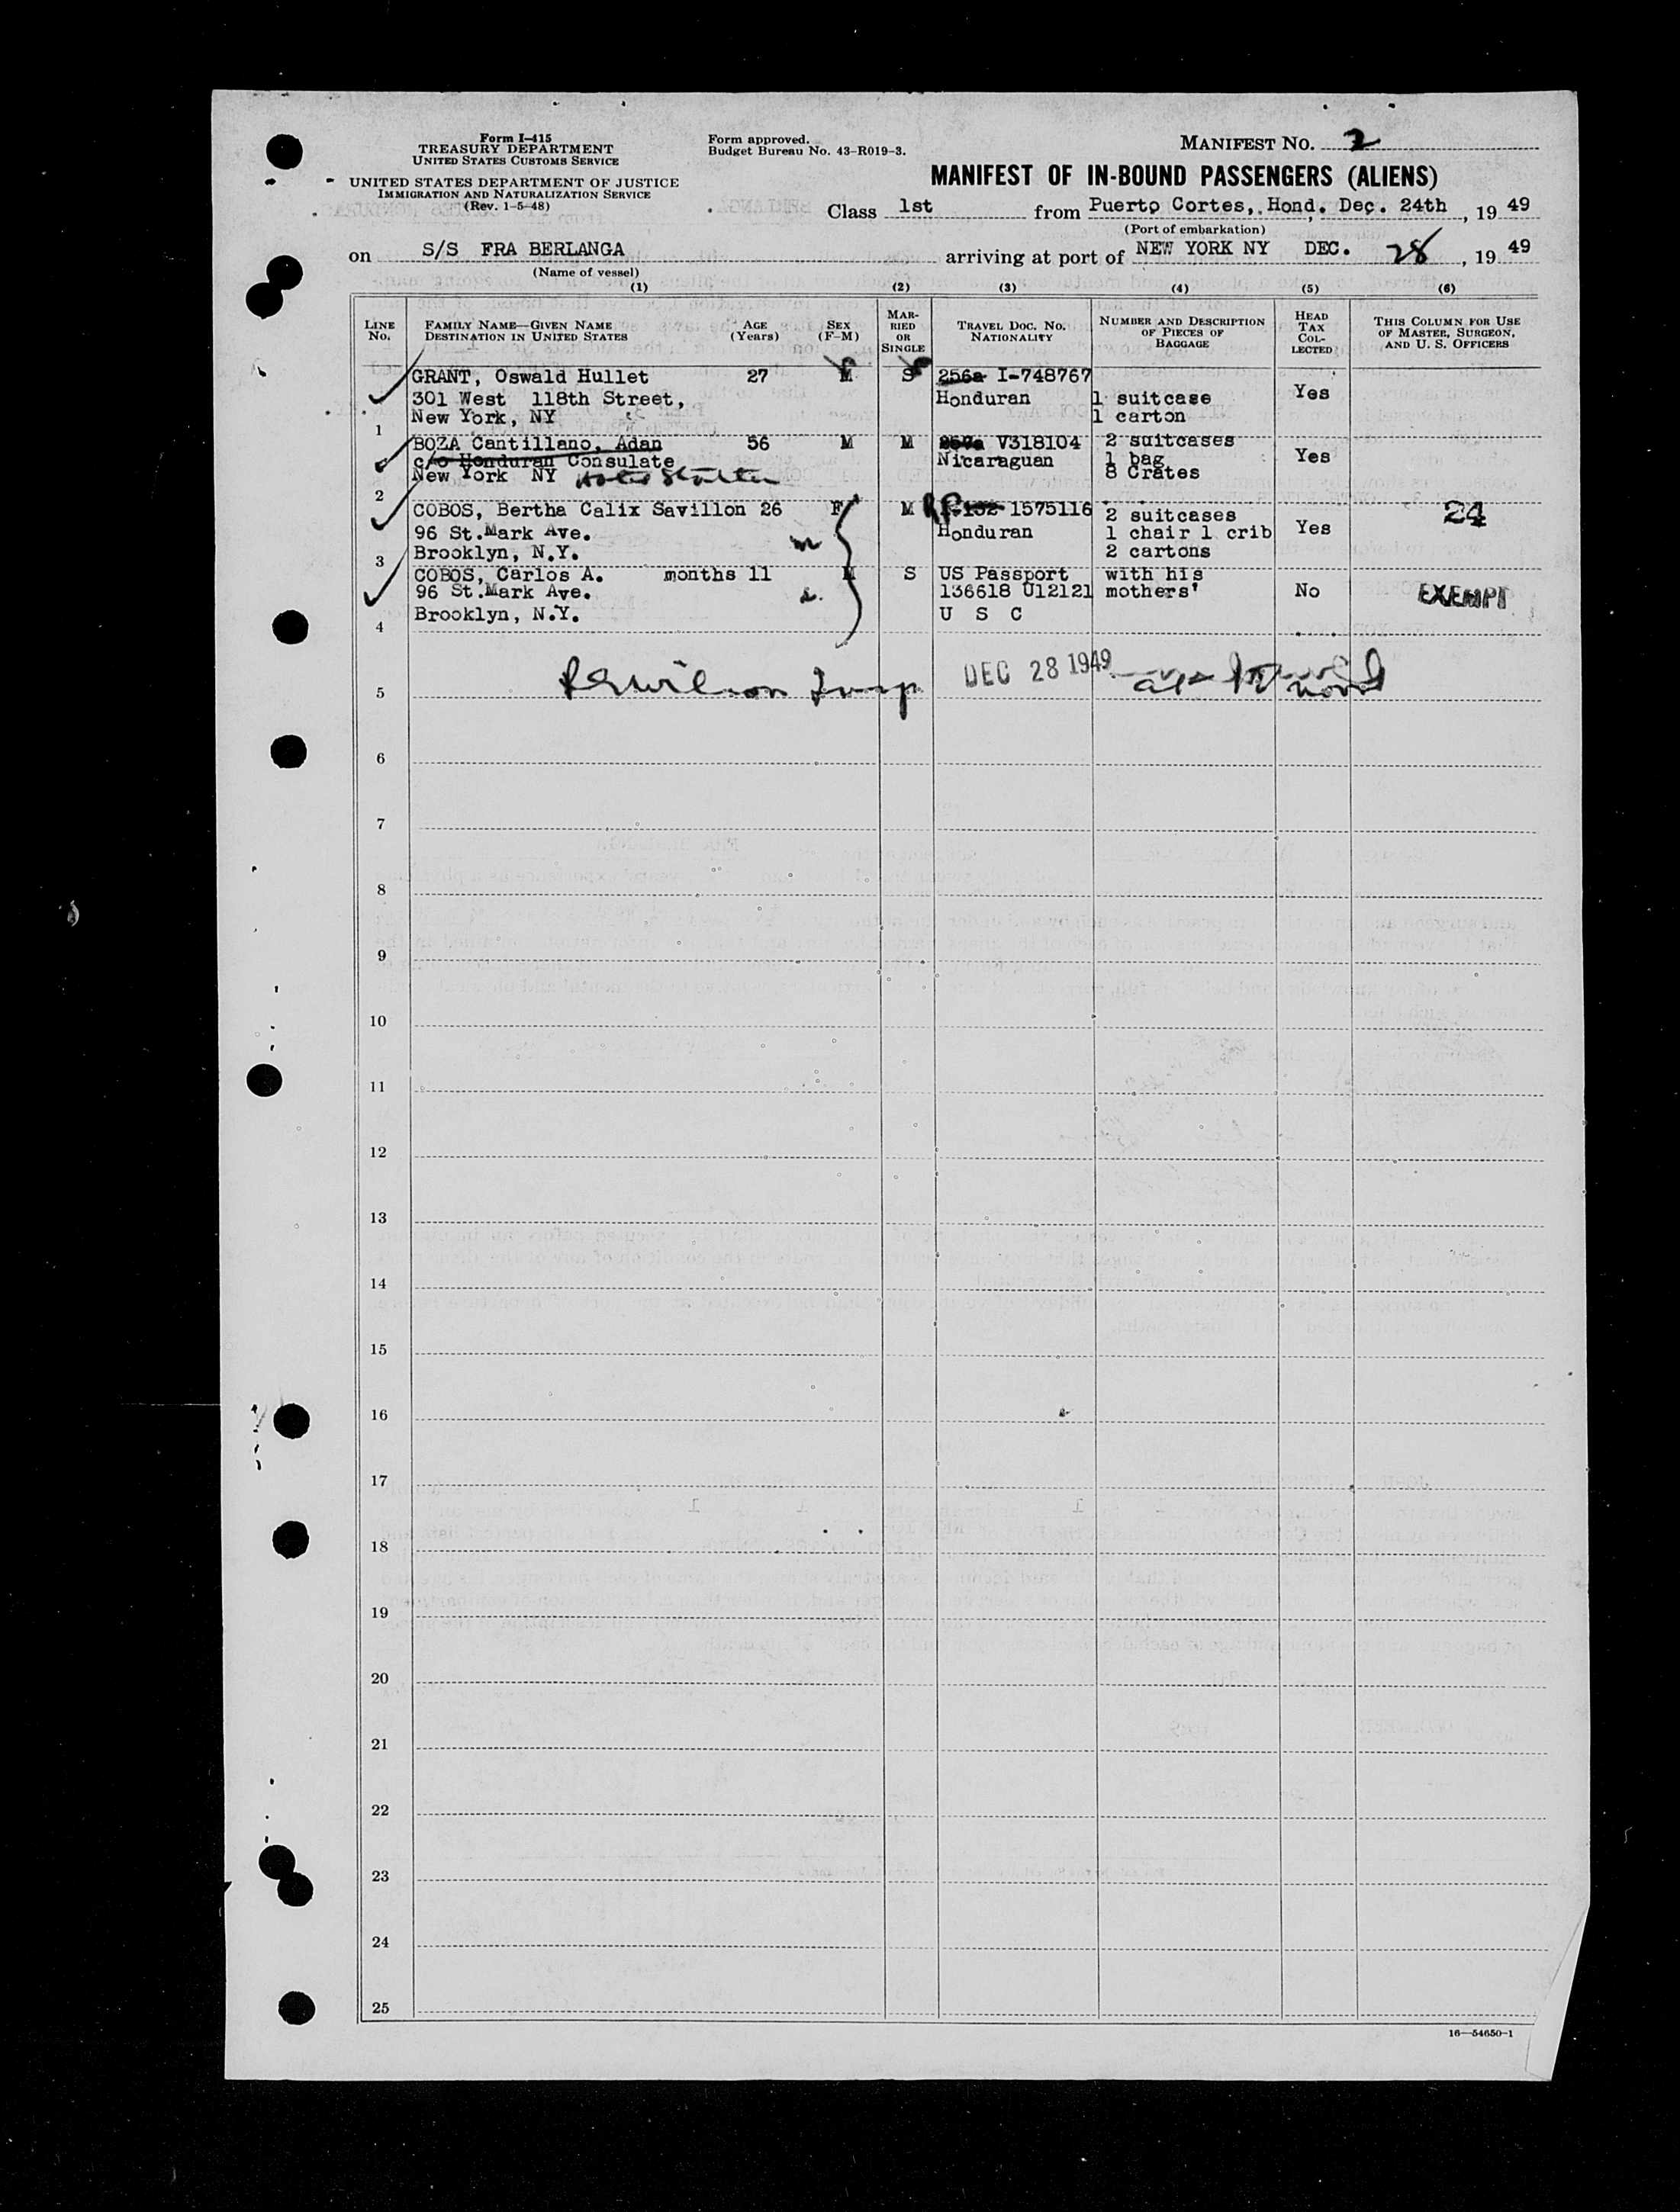 Form I-415
TREASURY DEPARTMENT
UNITED STATES CUSTOMS SERVICE
UNITED STATES DEPARTMENT OF JUSTICE
IMMIGRATION AND NATURALIZATION SERVICE
(Rev. 1-5-48)
Form approved.
Budget Bureau No. 43-R019-3.
MANIFEST NO. 2
MANIFEST OF IN-BOUND PASSENGERS (ALIENS)
Class 1st from Puerto Cortes, Hond. Dec. 24th, 19 49
(Port of embarkation)
on S/S FRA BERLANGA arriving at port of NEW YORK NY DEC. 28, 19 49
(Name of vessel)
(1) (2) (3) (4) (5) (6)
LINE No.
FAMILY NAME—GIVEN NAME
DESTINATION IN UNITED STATES
AGE (Years)
SEX (F-M)
MARRIED OR SINGLE
TRAVEL DOC. NO. NATIONALITY
NUMBER AND DESCRIPTION OF PIECES OF BAGGAGE
HEAD TAX COLLECTED
THIS COLUMN FOR USE OF MASTER, SURGEON, AND U. S. OFFICERS
GRANT, Oswald Hullet 27 M S 256a I-748767
301 West 118th Street, Honduran 1 suitcase Yes
New York, NY 1 carton
1
BOZA Cantillano, Adan 56 M M V318104 2 suitcases
c/o Honduran Consulate Nicaraguan 1 bag Yes
New York NY 8 Crates
2
COBOS, Bertha Calix Savillon 26 F M 1575116 2 suitcases 24
96 St.Mark Ave. Honduran 1 chair 1 crib Yes
Brooklyn, N.Y. 2 cartons
3
COBOS, Carlos A. months 11 M S US Passport with his
96 St.Mark Ave. 136618 U12121 mothers' No EXEMPT
Brooklyn, N.Y. U S C
4
DEC 28 1949
5
6
7
8
9
10
11
12
13
14
15
16
17
18
19
20
21
22
23
24
25
16—54650-1